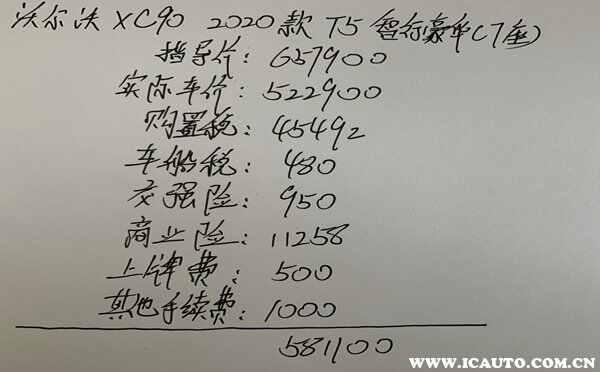 沃尔沃XC90 2020款 T5 智行豪华(7座)
指导价: 657900
实际车价: 522900
购置税: 45492
车船税: 480
交强险: 950
商业险: 11258
上牌费: 500
其他手续费: 1000
581100
WWW.ICAUTO.COM.CN